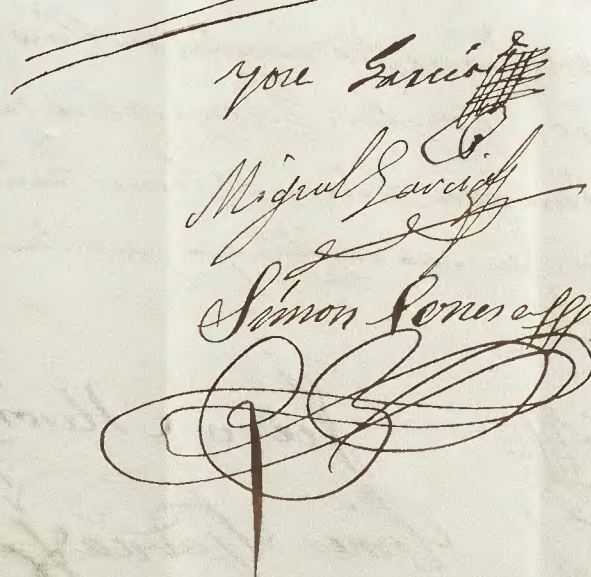 Jose Garcia
Miguel Garcia
Simon Conesa